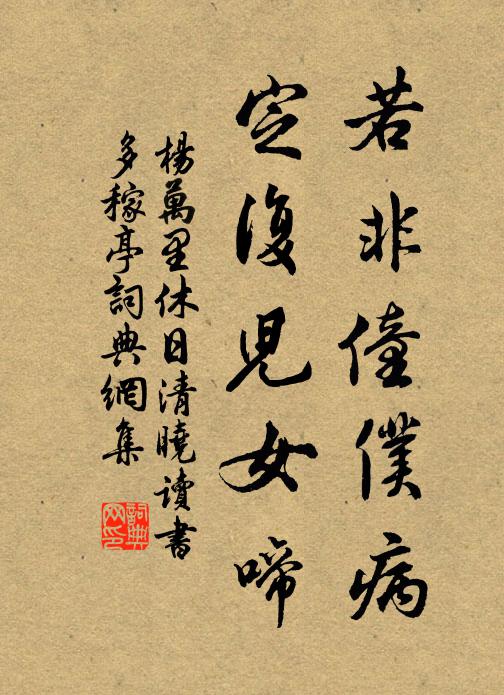 若非僮僕病
定復兒女啼
楊萬里休日清曉讀書
多稼亭詞典網集
詞典網印